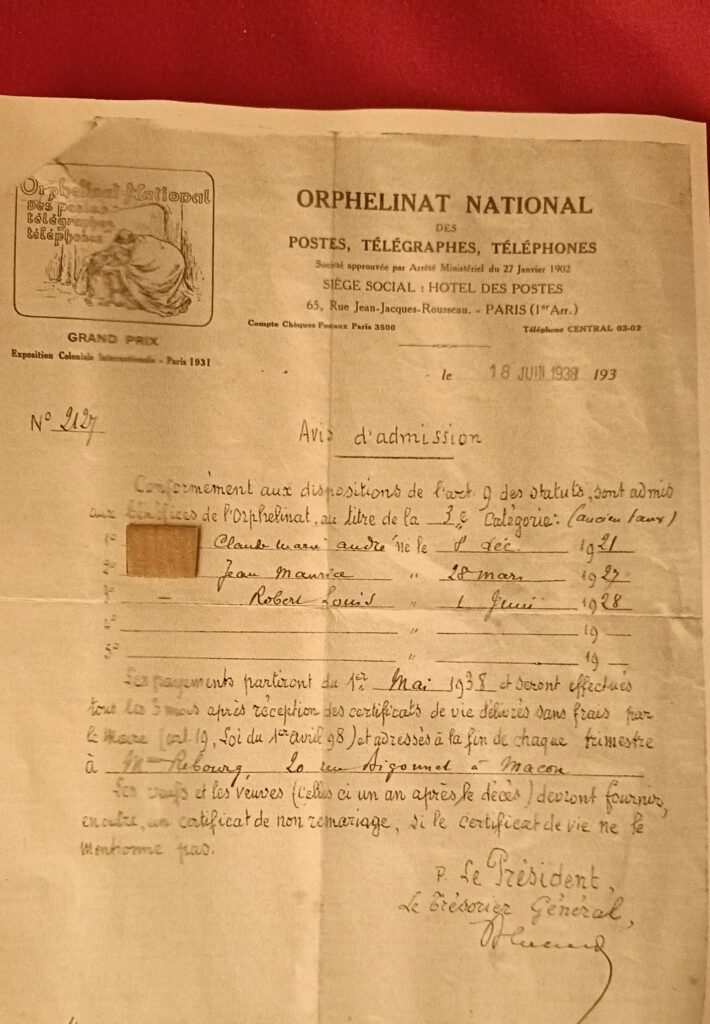 Orphelinat National
des postes
télégraphes
téléphones
GRAND PRIX
Exposition Coloniale Internationale - Paris 1931
ORPHELINAT NATIONAL
DES
POSTES, TÉLÉGRAPHES, TÉLÉPHONES
Société approuvée par Arrêté Ministériel du 27 Janvier 1902
SIÈGE SOCIAL : HOTEL DES POSTES
65, Rue Jean-Jacques-Rousseau. - PARIS (1er Arr.)
Compte Chèques Postaux Paris 3500
Téléphone CENTRAL 03-02
le 18 JUIN 1938 193
No 2127
Avis d'admission
Conformément aux dispositions de l'art 9 des statuts, sont admis
aux bénéfices de l'Orphelinat, au titre de la 3e catégorie: (ancien taux)
1o Claude marie andré né le 8 déc. 1921
2o Jean Maurice " 28 mars 1927
3o - Robert Louis " 1 Juin 1928
4o " 19
5o " 19
Les payements partiront du 1er Mai 1938 et seront effectués
tous les 3 mois après réception des certificats de vie délivrés sans frais par
le Maire (art 19, Loi du 1er avril 98) et adressés à la fin de chaque trimestre
à Mme Rebourg, 20 rue Bigonnet à Macon
Les veufs et les veuves (Celles ci un an après le décès) devront fournir,
en outre, un certificat de non remariage, si le certificat de vie ne le
mentionne pas.
P. Le Président,
Le Trésorier Général,